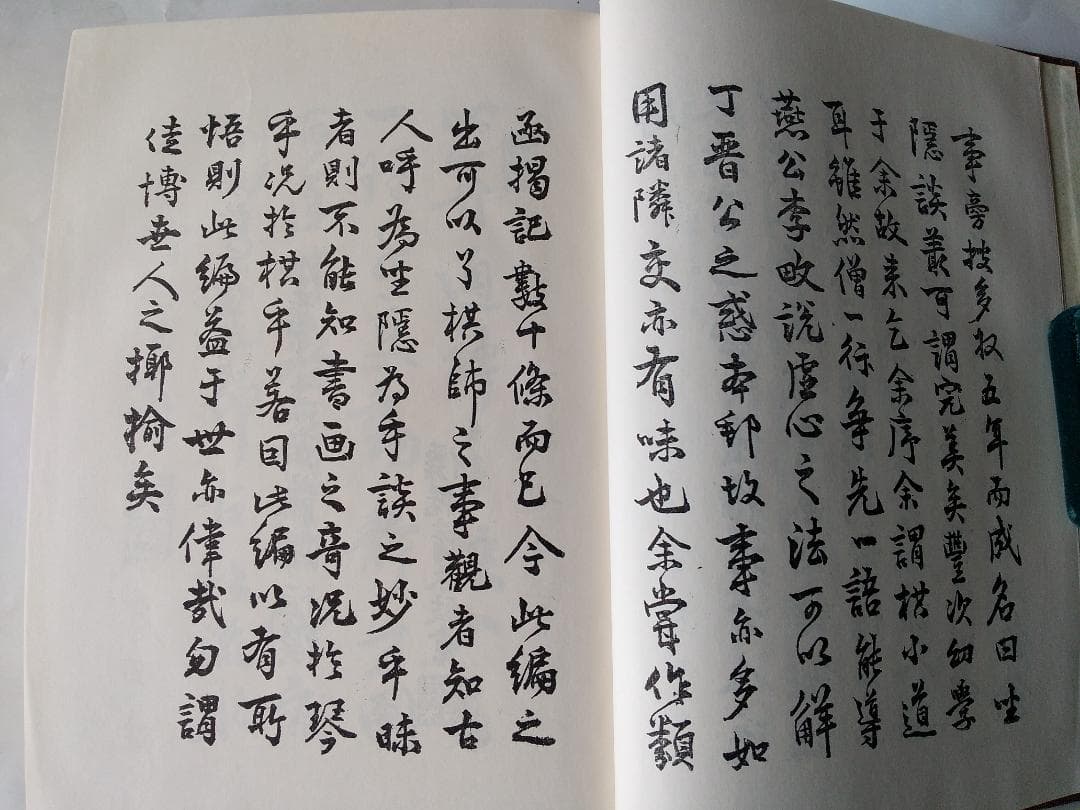 事旁捜多收五年而成名曰坐
隱談叢可謂完美矣豐次幼學
于余故来乞余序余謂棋小道
耳雖然僧一行争先一語能導
燕公李畋説虚心之法可以解
丁晋公之惑本邦故事亦多如
用諸隣交亦有味也余嘗作類
函掲記數十條而已今此編之
出可以了棋師之事觀者知古
人呼為坐隱為手談之妙手昧
者則不能知書画之奇況於琴
手況於棋手若因此編以有所
悟則此編益于世亦偉哉勿謂
佳博無人之揶揄矣